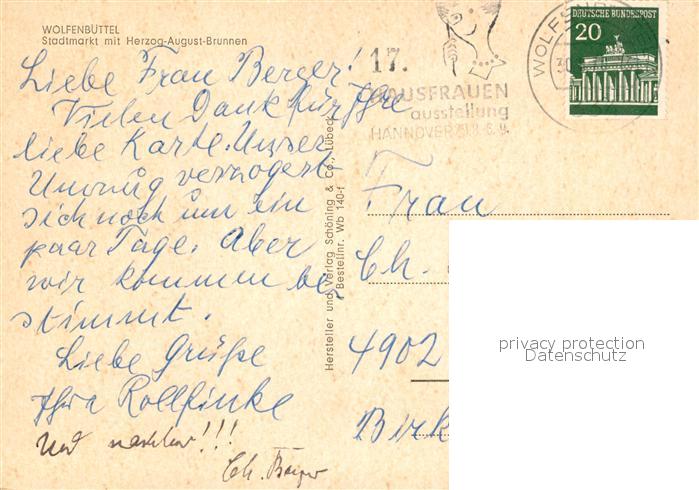 WOLFENBÜTTEL
Stadtmarkt mit Herzog-August-Brunnen
Liebe Frau Berger!
Vielen Dank für Ihre
liebe Karte. Unser
Umzug verzögert
sich noch um ein
paar Tage. Aber
wir kommen be
stimmt.
Liebe Grüße
Ihre Rollfinke
Und
Ch.
Hersteller und Verlag Schöning & Co., Lübeck
Bestellnr. Wb 140-f
17.
HAUSFRAUEN
ausstellung
HANNOVER
WOLFSBURG
DEUTSCHE BUNDESPOST
20
Frau
Ch.
4902
Birk
privacy protection
Datenschutz